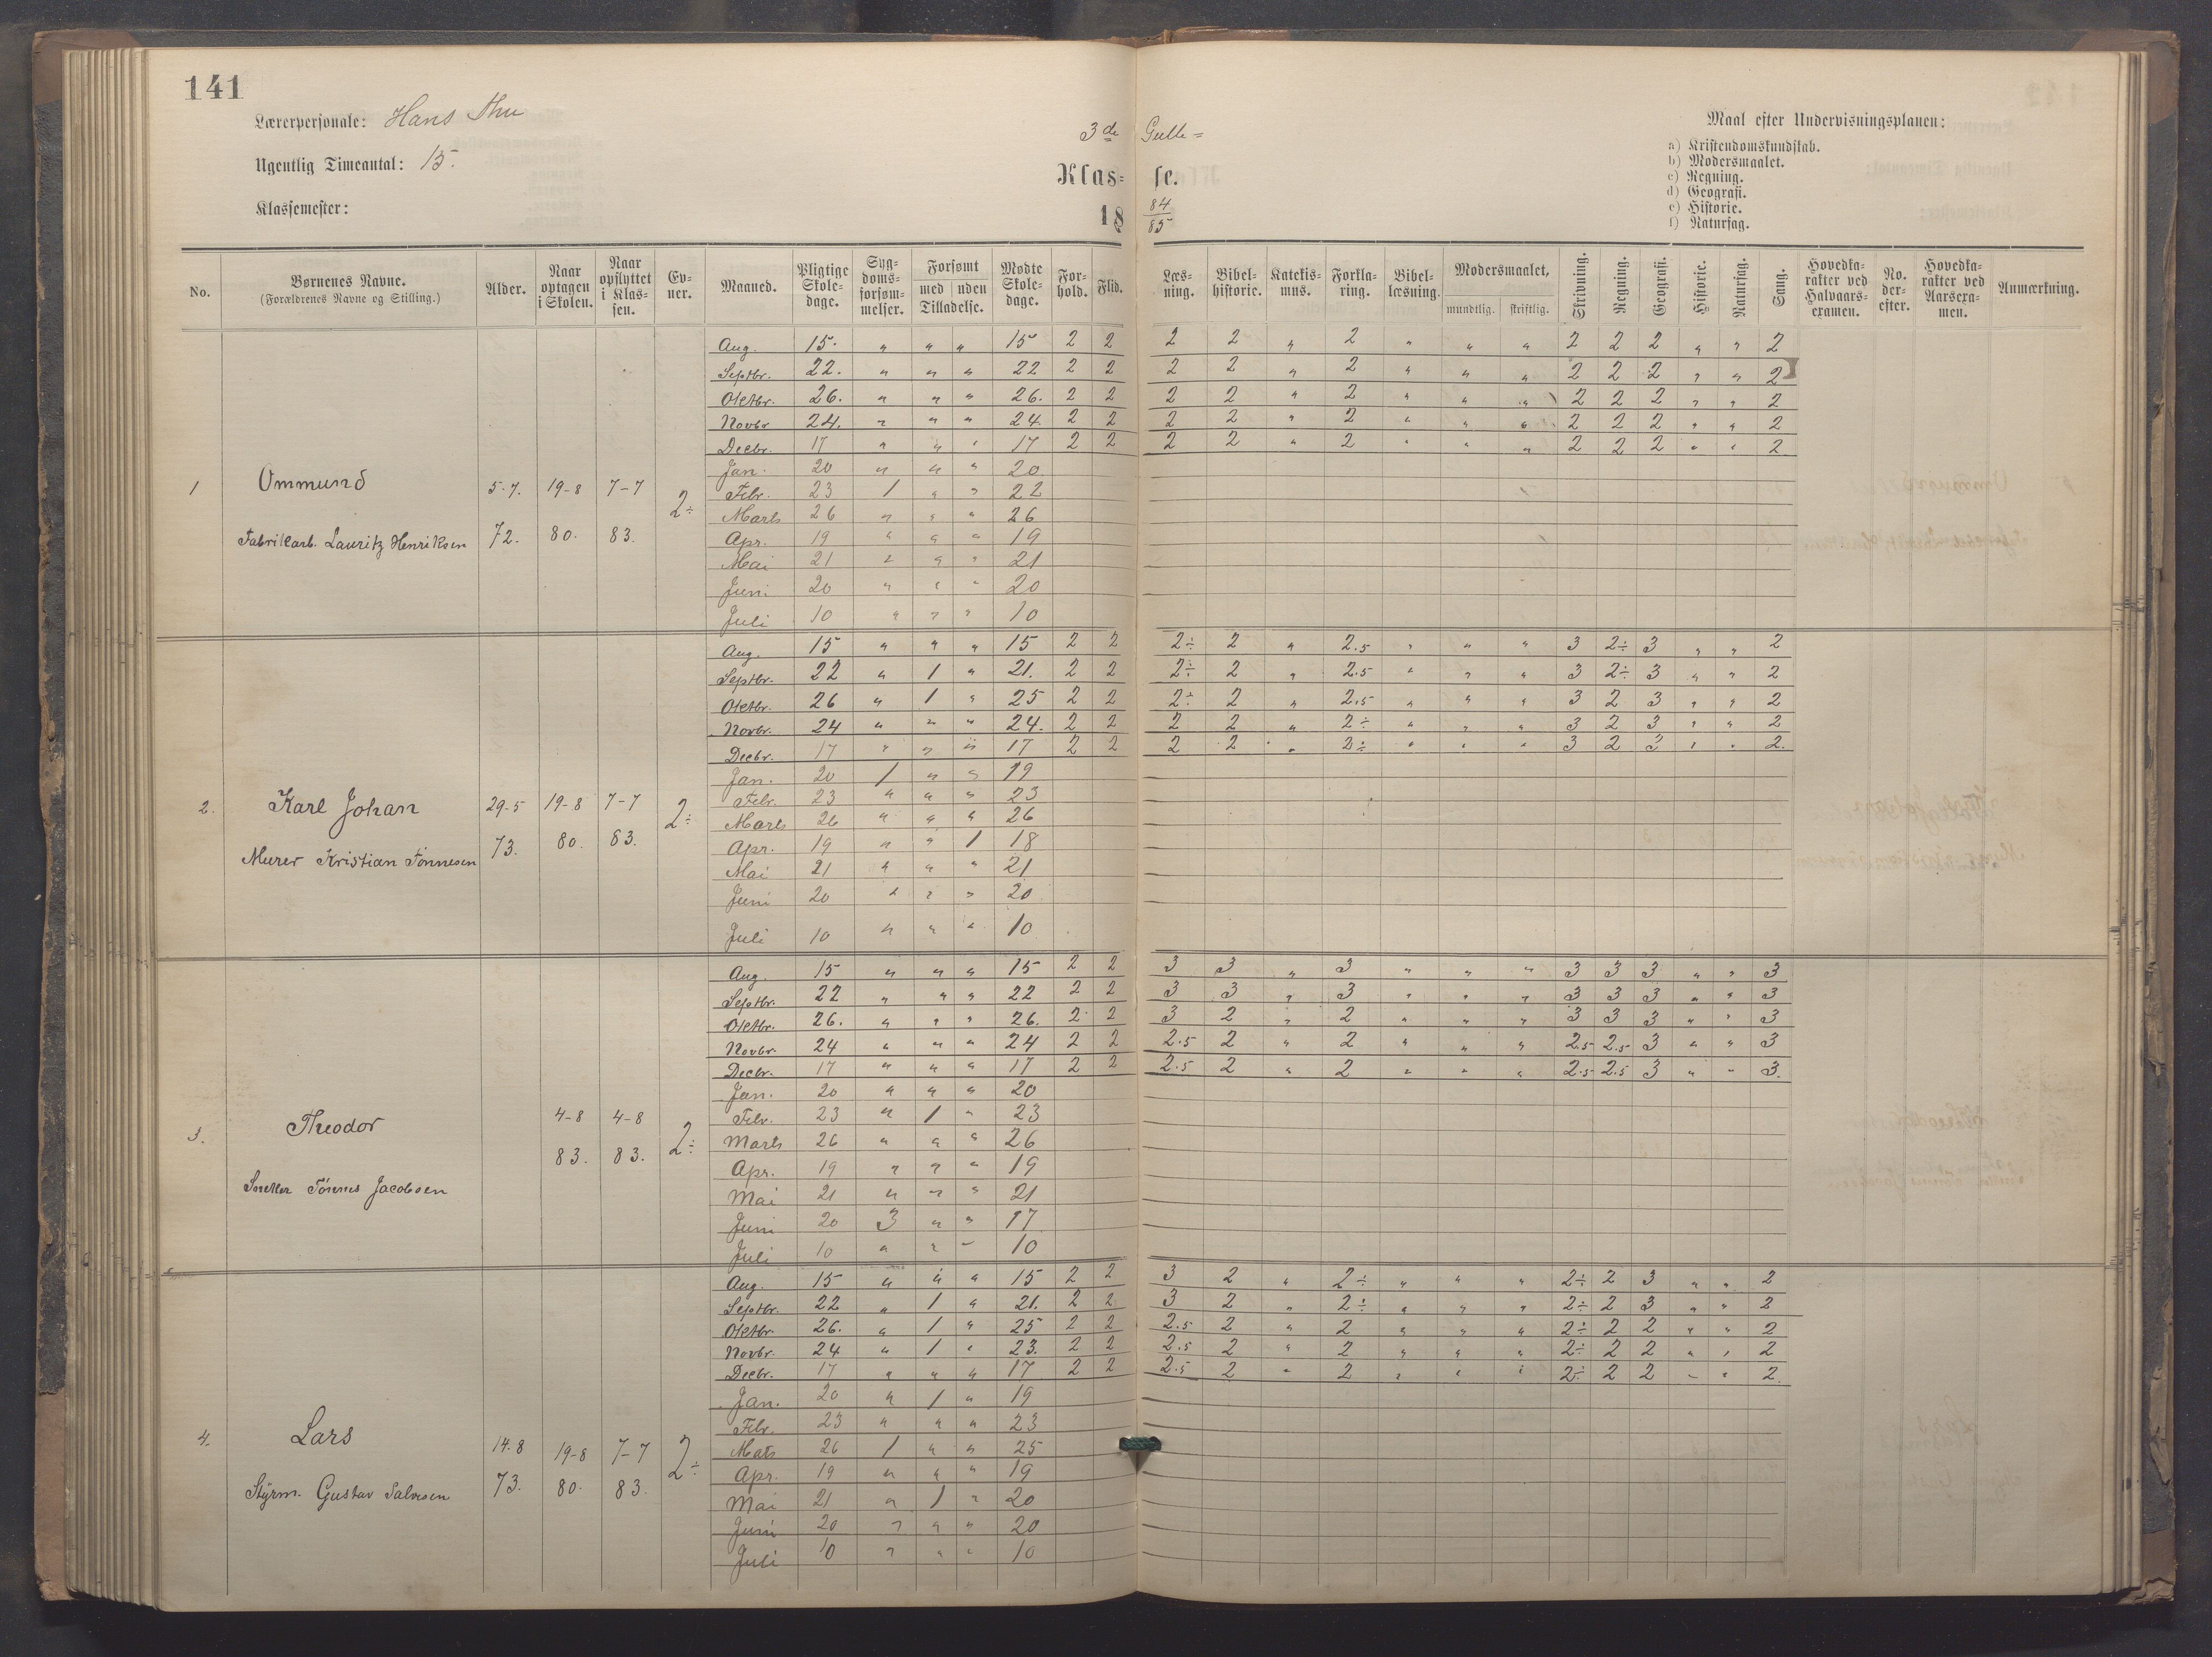 141
Lærerpersonale: Hans Thu
Ugentlig Timeantal: 15.
Klassemester:
3de Gutte=
Klas= se.
18 84/85
Maal efter Undervisningsplanen:
a) Kristendomskundskab.
b) Modersmaalet.
c) Regning.
d) Geografi.
e) Historie.
f) Naturfag.
No. | Børnenes Navne. (Forældrenes Navne og Stilling.) | Alder. | Naar optagen i Skolen. | Naar opflyttet i Klassen. | Evner. | Maaned. | Pligtige Skoledage. | Sygdomsforsømmelser. | Forsømt med uden Tilladelse. | Mødte Skoledage. | Forhold. | Flid. | Læsning. | Bibelhistorie. | Katekismus. | Forklaring. | Bibellæsning. | Modersmaalet, mundtlig. skriftlig. | Skrivning. | Regning. | Geografi. | Historie. | Naturfag. | Sang. | Hovedkarakter ved Halvaarsexamen. | No. derefter. | Hovedkarakter ved Aarsexamen. | Anmærkning.
1 Ommund 5-7. 19-8 7-7 2÷
Fabrikarb. Lauritz Henriksen 72. 80. 83.
Aug. 15. " " " 15 2 2 2 2 " 2 " " " 2 2 2 " " 2
Septbr. 22. " " " 22 2 2 2 2 " 2 " " " 2 2 2 " " 2
Oktbr. 26. " " " 26. 2 2 2 2 " 2 " " " 2 2 2 " " 2
Novbr 24. " " " 24. 2 2 2 2 " 2 " " " 2 2 2 " " 2
Decbr. 17 " " " 17 2 2 2 2 " 2 " " " 2 2 2 " " 2
Jan. 20 " " " 20
Febr. 23 1 " " 22
Marts 26 " " " 26
Apr. 19 " " " 19
Mai 21 " " " 21
Juni 20 " " " 20
Juli 10 " " " 10
2. Karl Johan 29-5 19-8 7-7 2÷
Murer Kristian Tønnesen 73. 80. 83.
Aug. 15 " " " 15 2 2 2÷ 2 " 2.5 " " " 3 2÷ 3 " " 2
Septbr. 22 " 1 " 21. 2 2 2÷ 2 " 2.5 " " " 3 2÷ 3 " " 2
Oktbr. 26 " 1 " 25 2 2 2÷ 2 " 2.5 " " " 3 2 3 " " 2
Novbr. 24 " " " 24. 2 2 2 2 " 2÷ " " " 3 2 3 " " 2
Decbr. 17 " " " 17 2 2 2 2 " 2÷ " " " 3 2 3 " " 2.
Jan. 20 1 " " 19
Febr. 23 " " " 23
Marts 26 " " " 26
Apr. 19 " " 1 18
Mai 21 " " " 21
Juni 20 " " " 20
Juli 10 " " " 10
3. Theodor 4-8 4-8 2÷
Snekker Tønnes Jacobsen 83. 83.
Aug. 15 " " " 15 2 2 3 3 " 3 " " " 3 3 3 " " 3
Septbr. 22 " " " 22 2 2 3 3 " 3 " " " 3 3 3 " " 3
Oktbr. 26. " " " 26. 2 2 3 2 " 2 " " " 3 3 3 " " 3
Novbr. 24 " " " 24 2 2 2.5 2 " 2 " " " 2.5 2.5 3 " " 3
Decbr. 17 " " " 17 2 2 2.5 2 " 2 " " " 2.5 2.5 3 " " 3.
Jan. 20 " " " 20
Febr. 23 " 1 " 23
Marts 26 " " " 26
Apr. 19 " " " 19
Mai 21 " " " 21
Juni 20 3 " " 17
Juli 10 " " " 10
4. Lars 14-8 19-8 7-7 2÷
Styrm. Gustav Salvesen 73. 80. 83.
Aug. 15 " " " 15 2 2 3 2 " 2÷ " " " 2÷ 2 3 " " 2
Septbr. 22 " 1 " 21. 2 2 3 2 " 2÷ " " " 2÷ 2 3 " " 2
Oktbr. 26. " 1 " 25 2 2 2.5 2 " 2 " " " 2÷ 2 2 " " 2
Novbr. 24 " 1 " 23. 2 2 2.5 2 " 2 " " " 2÷ 2 2 " " 2
Decbr. 17 " " " 17 2 2 2.5 2 " 2 " " " 2÷ 2 2 " " 2.
Jan. 20 " 1 " 19
Febr. 23 " " " 23
Mats 26 1 " " 25
Apr. 19 " " " 19
Mai 21 " 1 " 20
Juni 20 " " " 20
Juli 10 " " " 10